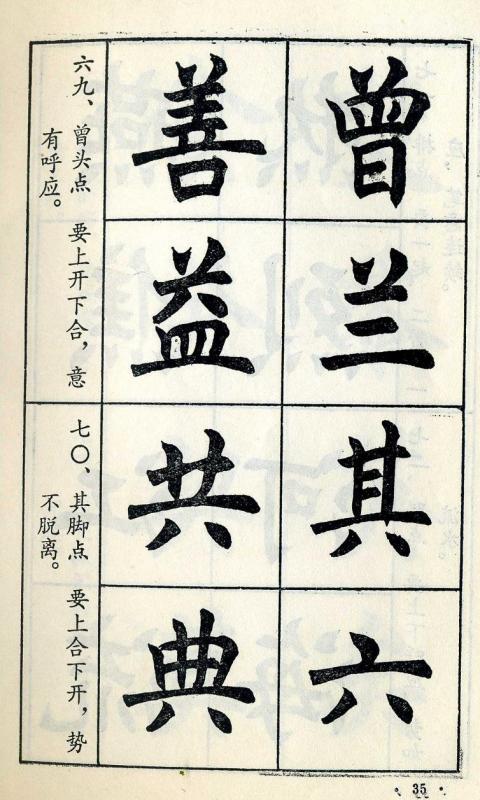 曾 善
兰 益
六九、曾头点 要上开下合，意
有呼应。
其 共
六 典
七〇、其脚点 要上合下开，势
不脱离。
·35·